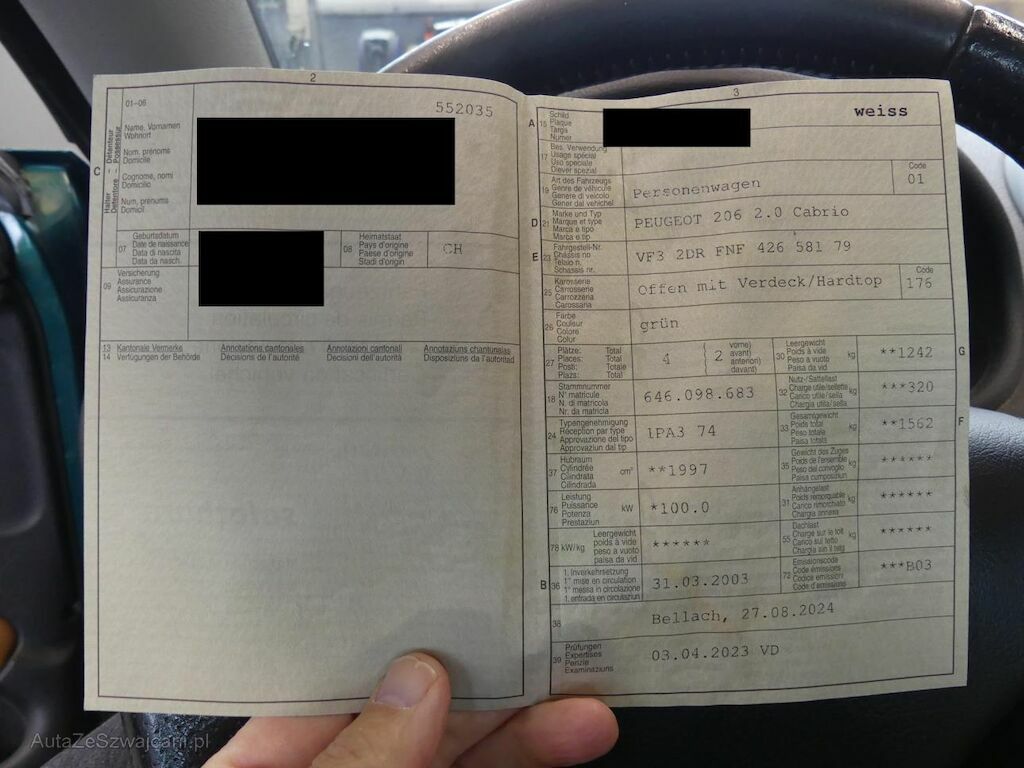 2
01-06
552035
C
Halter
Détenteur
Detentore
Possessur
Name, Vornamen
Wohnort
Nom, prénoms
Domicile
Cognome, nomi
Domicilio
Num, prenums
Domicil
07
Geburtsdatum
Date de naissance
Data di nascita
Data da nasch.
08
Heimatstaat
Pays d'origine
Paese d'origine
Stadi d'origin
CH
09
Versicherung
Assurance
Assicurazione
Assicuranza
13 Kantonale Vermerke Annotations cantonales Annotazioni cantonali Annotaziuns chantunalas
14 Verfügungen der Behörde Décisions de l'autorité Decisioni dell'autorità Disposiziuns da l'autoritad
3
A 15
Schild
Plaque
Targa
Numer
weiss
17
Bes. Verwendung
Usage spécial
Uso speciale
Diever spezial
19
Art des Fahrzeugs
Genre de véhicule
Genere di veicolo
Gener dal vehichel
Personenwagen
Code
01
D 21
Marke und Typ
Marque et type
Marca e tipo
Marca e tip
PEUGEOT 206 2.0 Cabrio
E 23
Fahrgestell-Nr.
Châssis no
Telaio n.
Schassis nr.
VF3 2DR FNF 426 581 79
25
Karosserie
Carrosserie
Carrozzeria
Carossaria
Offen mit Verdeck/Hardtop
Code
176
26
Farbe
Couleur
Colore
Colur
grün
27
Plätze: Total
Places: Total
Posti: Totale
Plazs: Total
4
2
vorne)
avant)
anteriori)
davant)
30
Leergewicht
Poids à vide
Peso a vuoto
Paisa da vid
kg
**1242
G
18
Stammnummer
N° matricule
N. di matricola
Nr. da matricla
646.098.683
32
Nutz-/Sattellast
Charge utile/sellette
Carico utile/sella
Chargia utila/sella
kg
***320
24
Typengenehmigung
Réception par type
Approvazione del tipo
Approvaziun dal tip
1PA3 74
33
Gesamtgewicht
Poids total
Peso totale
Paisa totala
kg
**1562
F
37
Hubraum
Cylindrée
Cilindrata
Cilindrada
cm³
**1997
35
Gewicht des Zuges
Poids de l'ensemble
Peso del convoglio
Paisa cumposiziun
kg
******
76
Leistung
Puissance
Potenza
Prestaziun
kW
*100.0
31
Anhängelast
Poids remorquable
Carico rimorchiato
Chargia annexa
kg
******
78 kW/kg
Leergewicht
poids à vide
peso a vuoto
paisa da vid
******
55
Dachlast
Charge sur le toit
Carico sul tetto
Chargia sin il tetg
kg
******
B 36
1. Inverkehrsetzung
1re mise en circulation
1a messa in circolazione
1. entrada en circulaziun
31.03.2003
72
Emissionscode
Code émissions
Codice emissioni
Code d'emissiuns
***B03
38
Bellach, 27.08.2024
39
Prüfungen
Expertises
Perizie
Examinaziuns
03.04.2023 VD
AutaZeSzwajcarii.pl